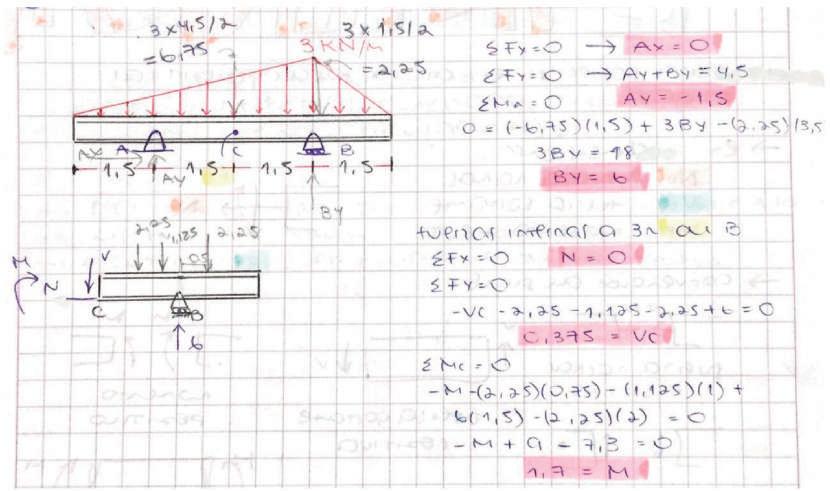 3x4,5/2
=6,75
3x1,5/2
=2,25
3 KN/m
Ax
A
C
B
1,5
1,5
1,5
1,5
Ay
By
2,25
1,125
2,25
M
N
V
C
B
6
ΣFx=0 → Ax=0
ΣFy=0 → Ay+By=4,5
ΣMa=0 Ay=-1,5
0=(-6,75)(1,5)+3By-(2,25)(3,5
3By=18
By=6
fuerzas internas a 3m B
ΣFx=0 N=0
ΣFy=0
-Vc-2,25-1,125-2,25+6=0
0,375=Vc
ΣMc=0
-M-(2,25)(0,75)-(1,125)(1)+
6(1,5)-(2,25)(2)=0
-M+9-7,3=0
1,7=M